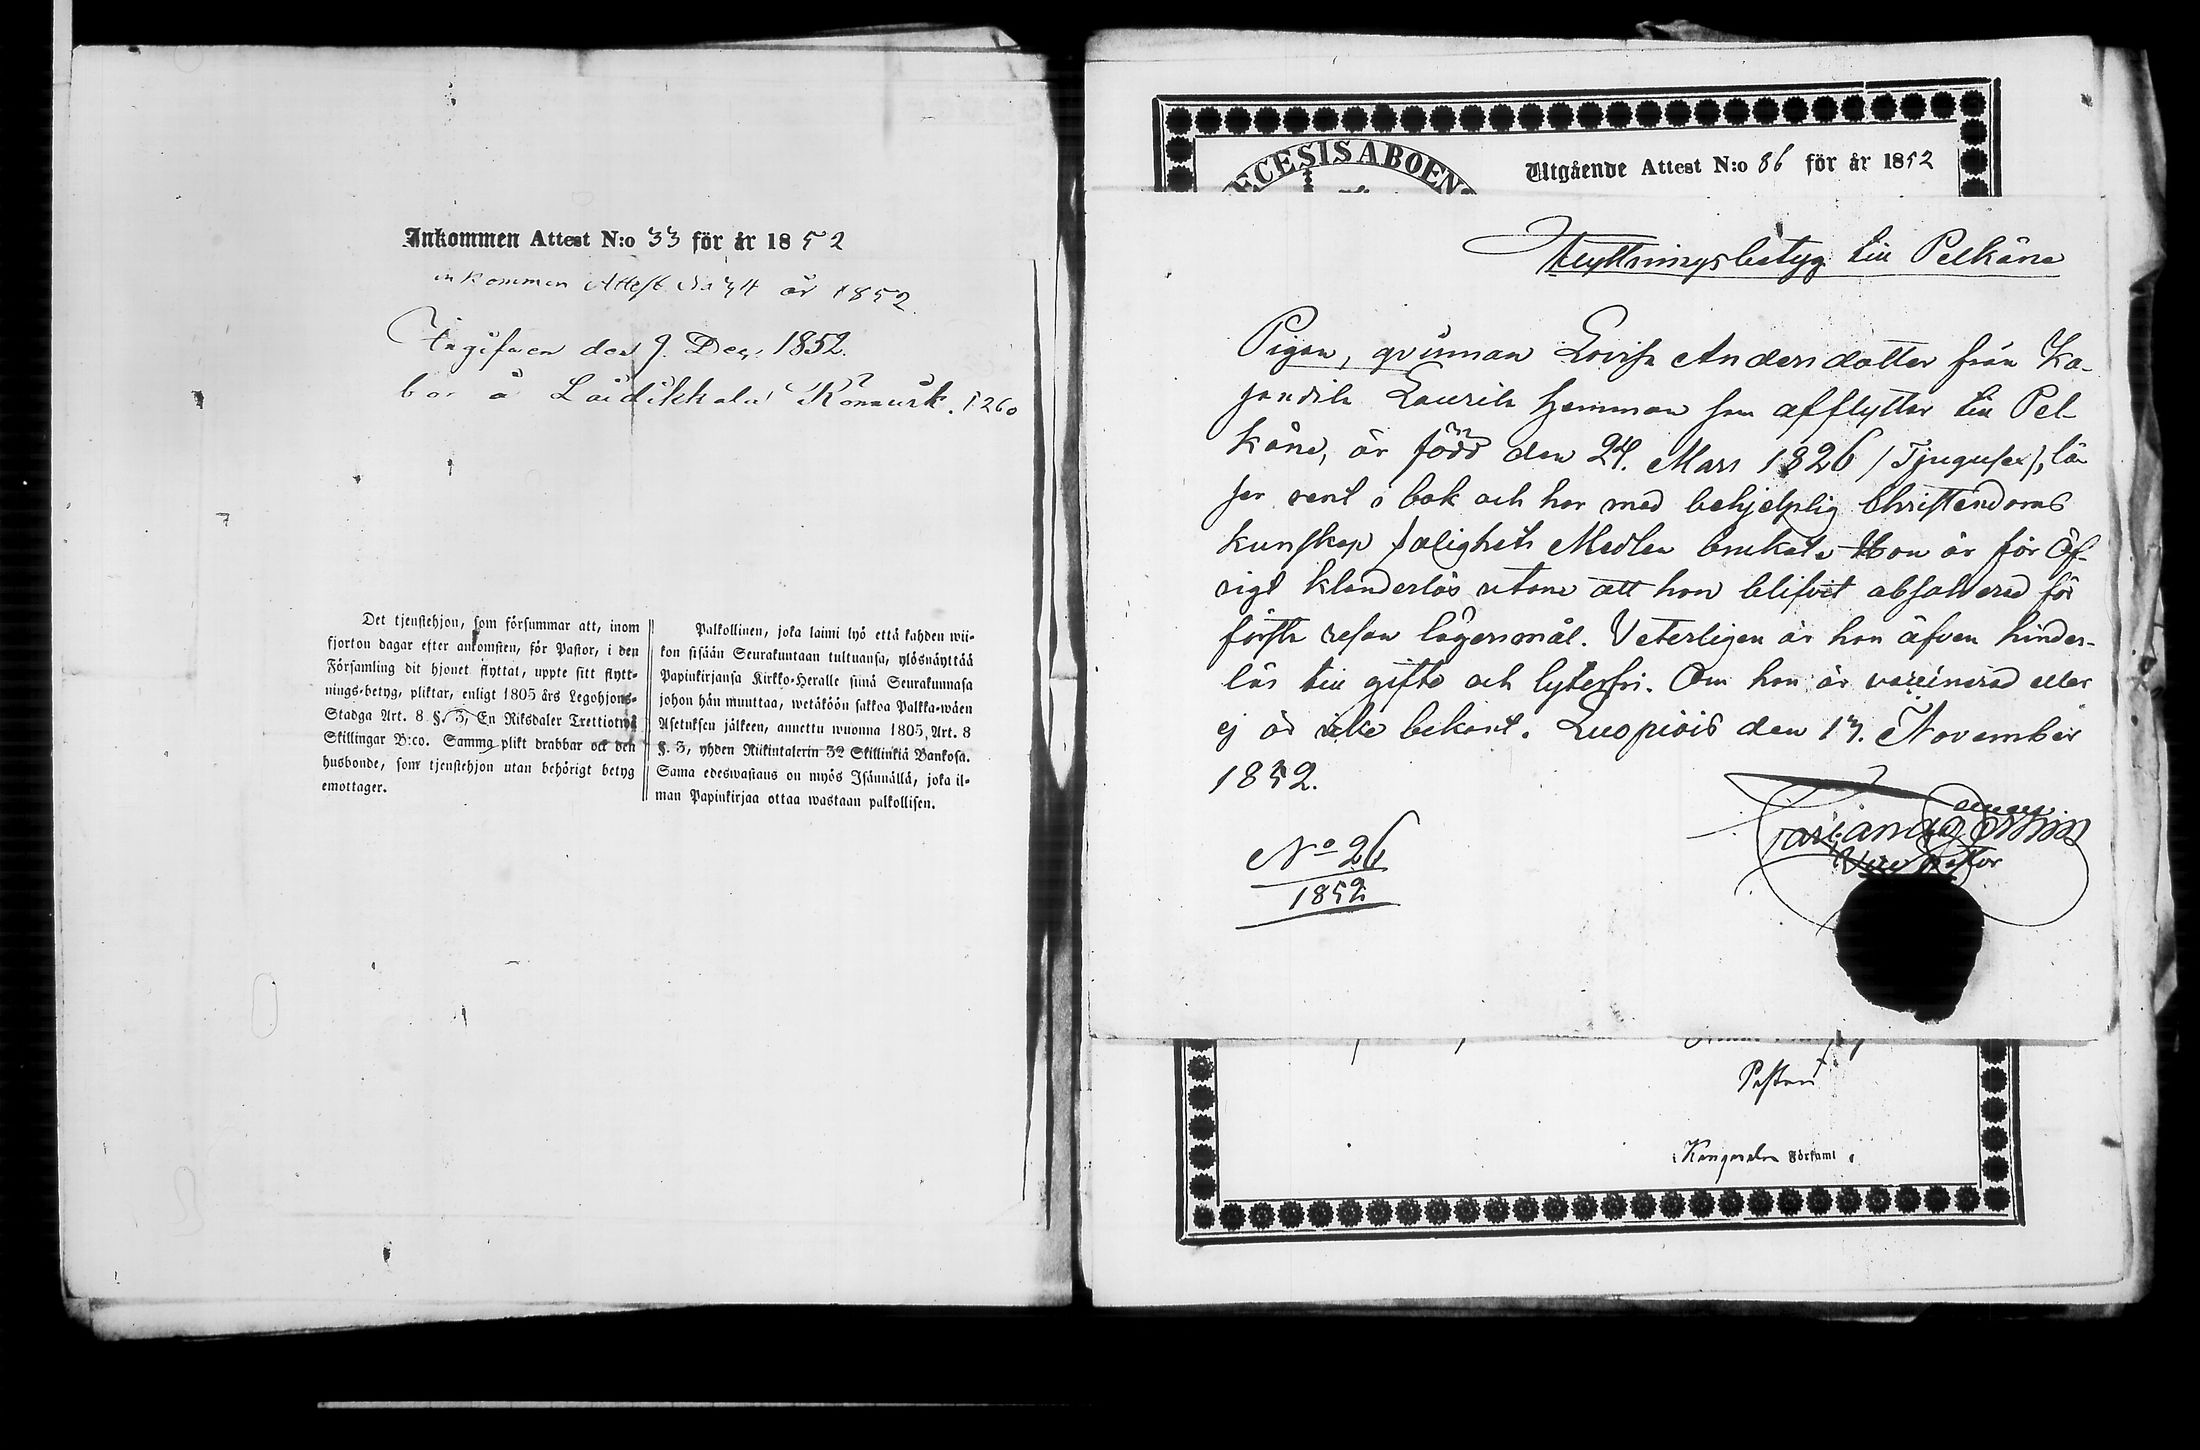 Inkommen Attest N:o 33 för år 1852
inkommen Attest No 34 år 1852.
Ingifven den 9. Dec. 1852.
bor å Laidikkala 1260
Det tjenstehjon, som försummar att, inom
fjorton dagar efter ankomsten, för Pastor, i den
Församling dit hjonet flyttat, uppte sitt flytt-
nings-betyg, pliktar, enligt 1805 års Legohjons-
Stadga Art. 8 §. 3, En Riksdaler Trettiotvå
Skillingar B:co. Samma plikt drabbar ock den
husbonde, som tjenstehjon utan behörigt betyg
emottager.
Palkollinen, joka laimi lyö että kahden wii-
kon sisään Seurakuntaan tultuansa, ylösnäyttää
Papinkirjansa Kirkko-Herralle siinä Seurakunnasa
johon hän muuttaa, wetäköön sakkoa Palkka-wäen
Asetuksen jälkeen, annettu wuonna 1805, Art. 8
§. 3, yhden Riikintalerin 32 Skillinkiä Bankosa.
Sama edeswastaus on myös Isännällä, joka il-
man Papinkirjaa ottaa wastaan palkollisen.
ECESIS ABOEN
Utgående Attest N:o 86 för år 1852
Flyttningsbetyg till Pelkäne
Pigan, qvinnan Lovisa Andersdotter från Ka-
Laurila hemman som afflyttar till Pel-
käne, är född den 24. Mars 1826 /Tjugusex/, lä-
ser rent i bok och har med behjelplig Christendoms
kunskap salighets Medlen brukat. Hon är för öf-
rigt klanderlös utom att hon blifvit absolverad för
första resan lägersmål. Veterligen är hon äfven hinder-
lös till gifte och lytesfri. Om hon är vaccinerad eller
ej är icke bekant. Luopiois den 13. November
1852.
Vice Pastor
No 26
1852
Pastor
Kangasala Församl.